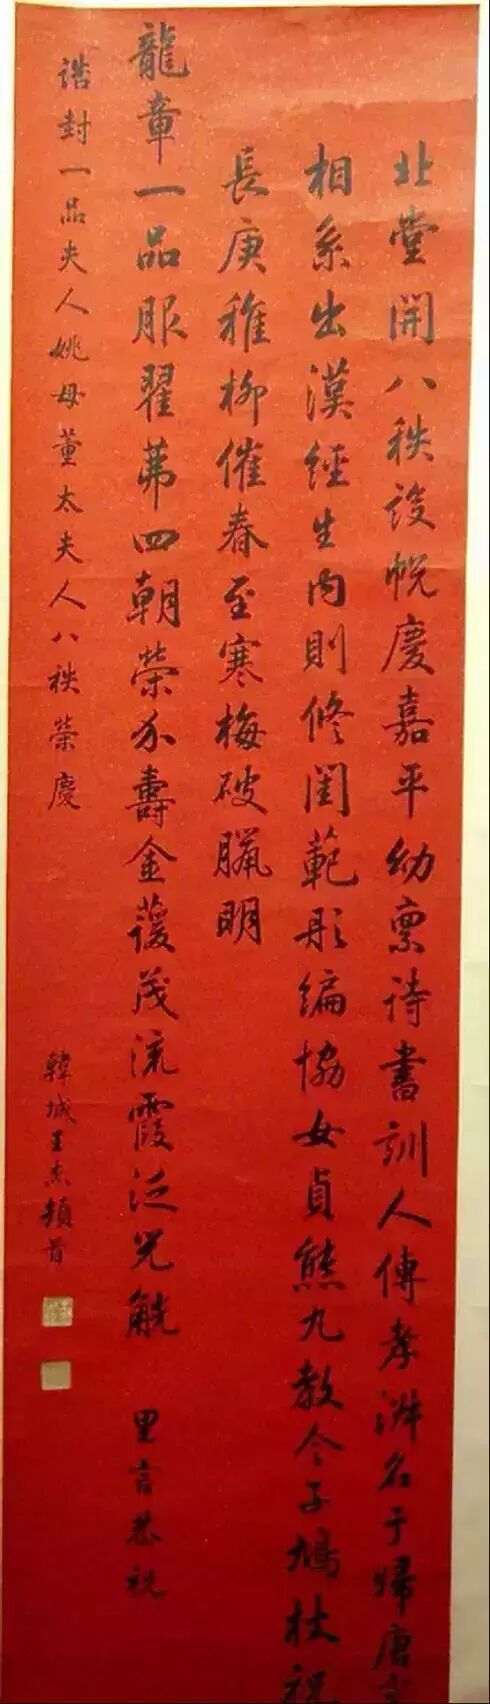 北堂開八秩設帨慶嘉平幼稟詩書訓人傳孝淋名于歸唐
相系出漢經生內則修閨範彤編協女貞熊丸教令子鳩杖祝
長庚稚柳催春至寒梅破臘明
龍章一品服翟茀四朝榮介壽金蘐茂流霞泛兕觥 里言恭祝
誥封一品夫人姚母董太夫人八秩榮慶
韓城王杰頓首